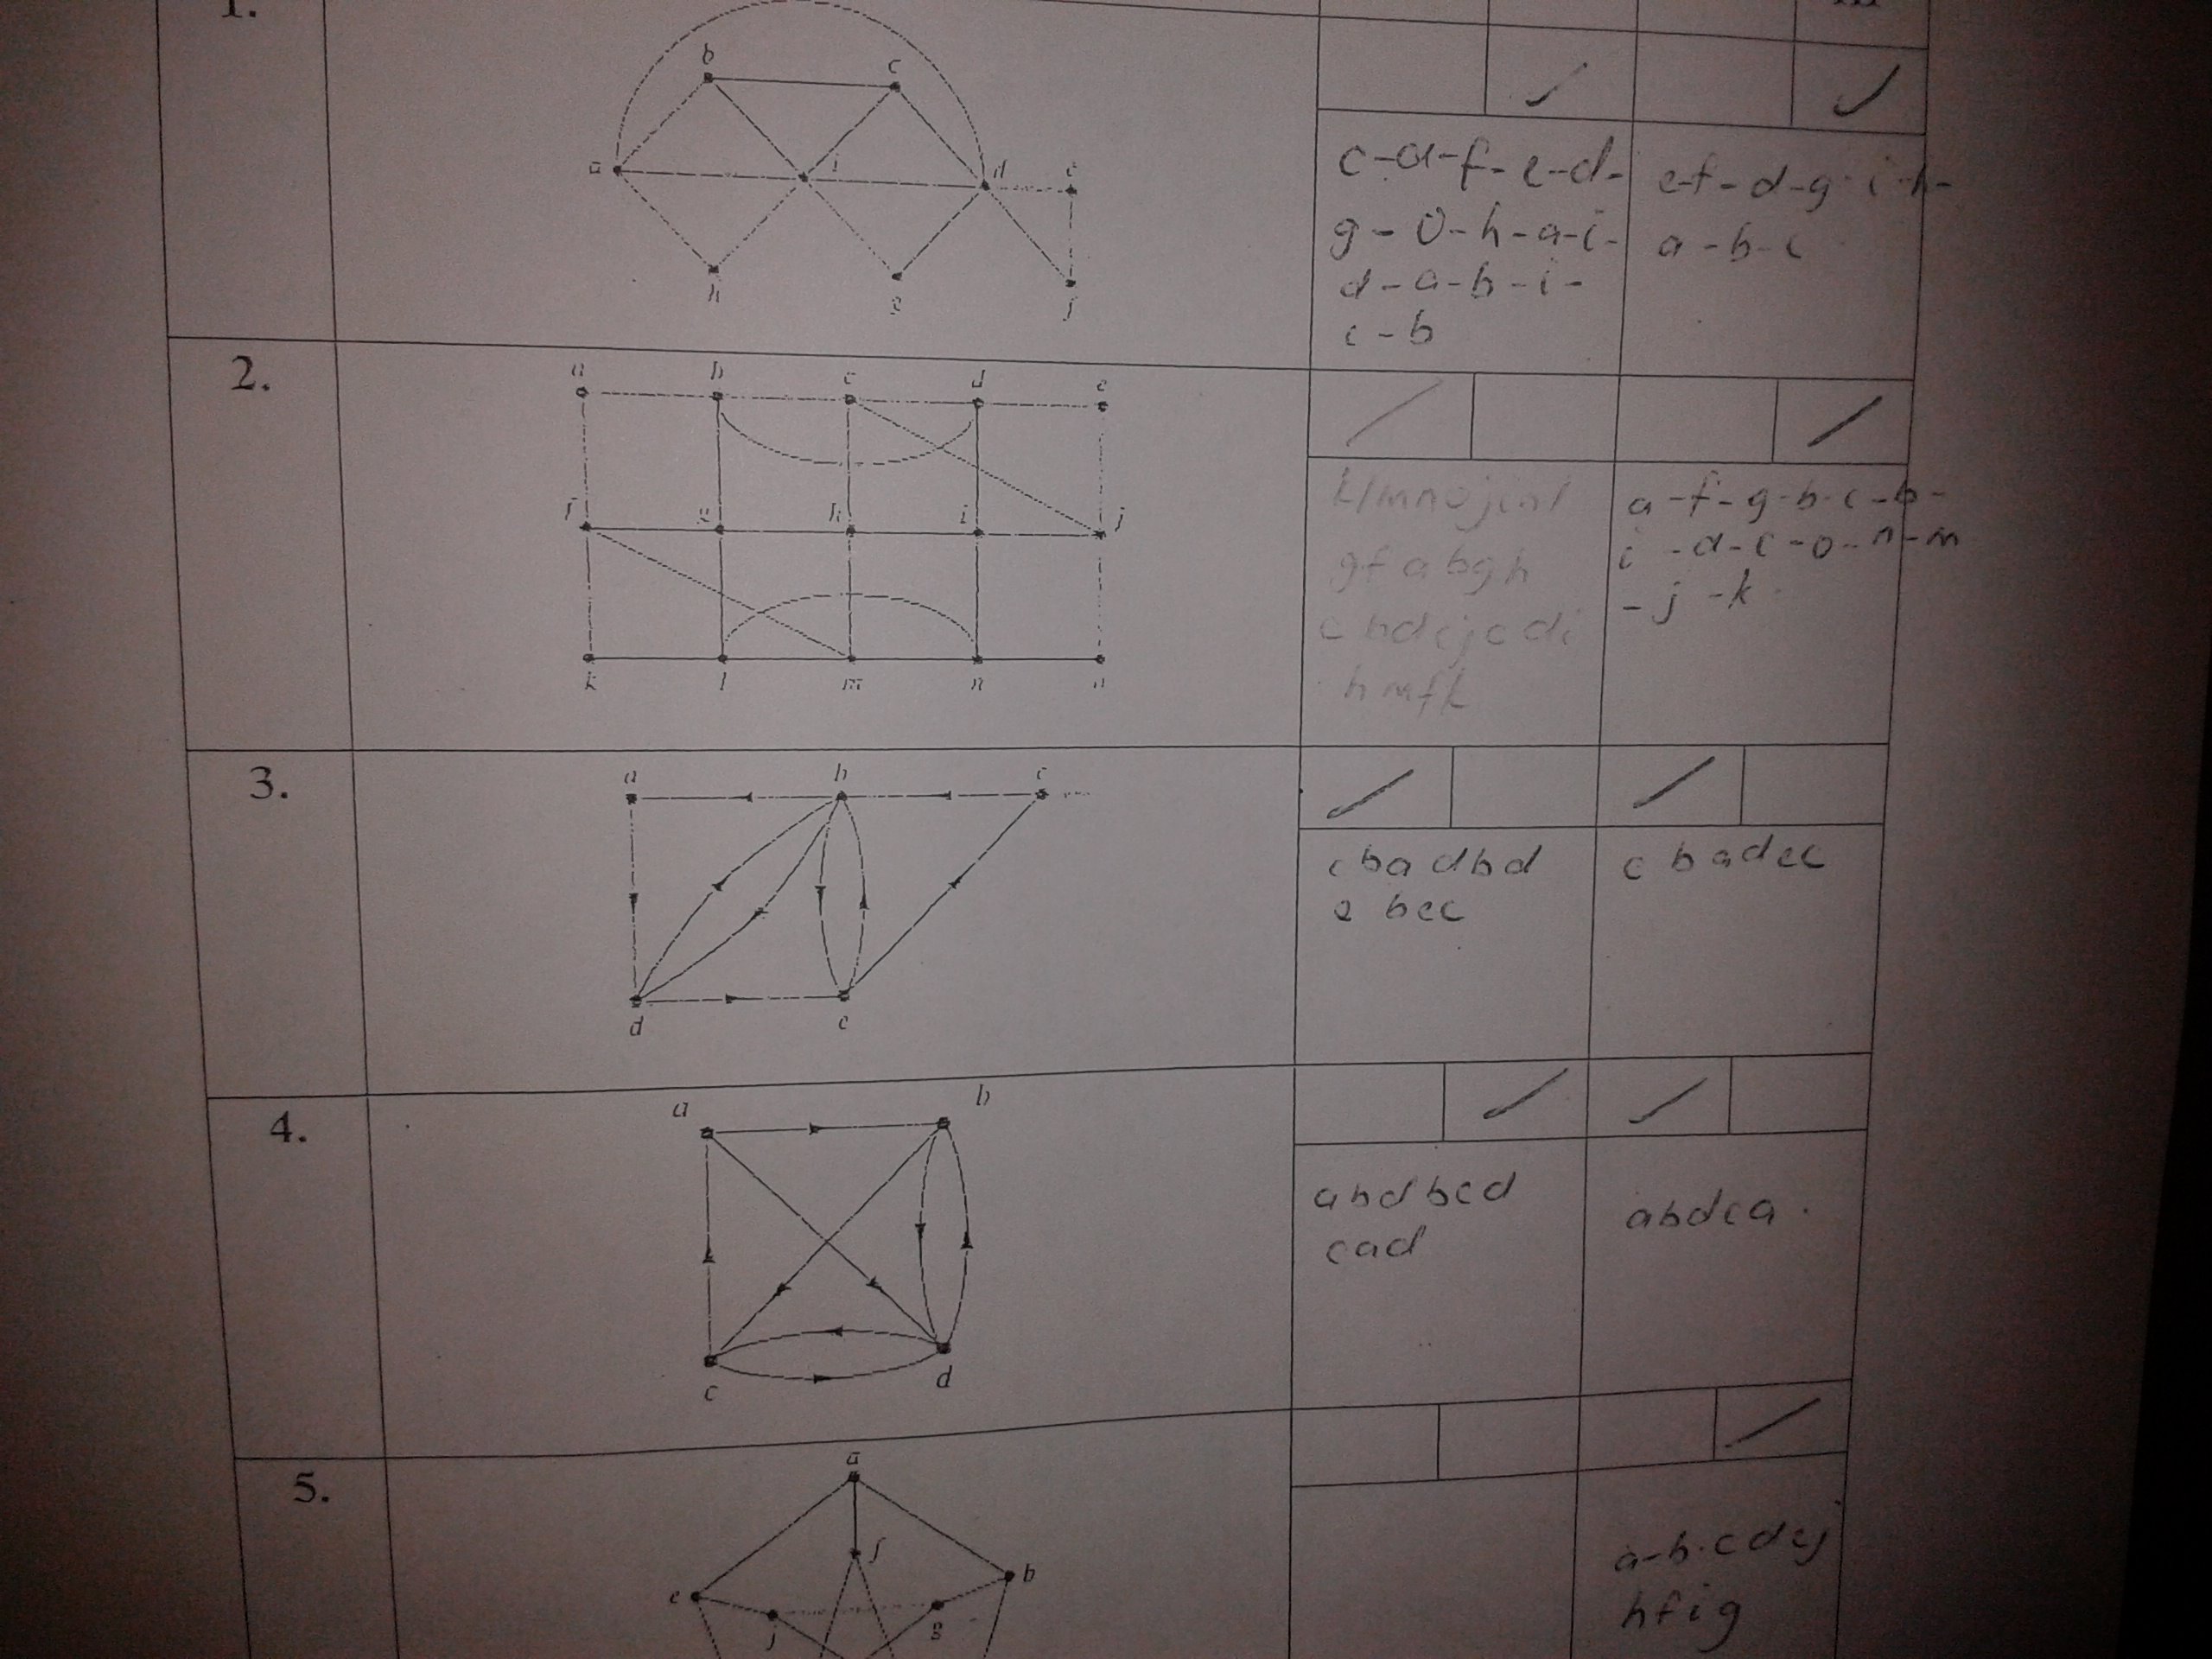 1.
b
c
a
i
d
e
h
g
f
c-d-f-e-d-
g-0-h-a-i-
d-a-b-i-
c-b
e-f-d-g-i-h-
a-b-c
2.
a b c d e
f g h i j
k l m n o
gf a bgh
hmfk
a-f-g-b-c-b-
i-d-c-o-n-m
-j-k
3.
a b c
d e
c ba d b d
e bec
c b a d e c
4.
a b
c d
a b d b c d
c a d
a b d c a .
5.
a
f
b
e
j
g
a-b.c d e j
h f i g